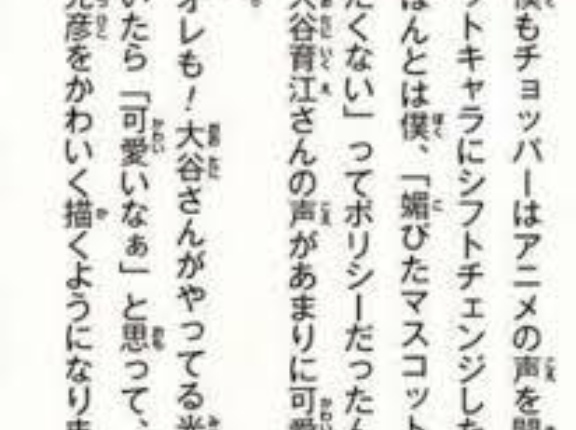 僕もチョッパーはアニメの声を聞
ットキャラにシフトチェンジした
ほんとは僕、「媚びたマスコット
たくない」ってポリシーだったん
大谷育江さんの声があまりに可愛
オレも！大谷さんがやってる光
いたら「可愛いなぁ」と思って、
光彦をかわいく描くようになりま